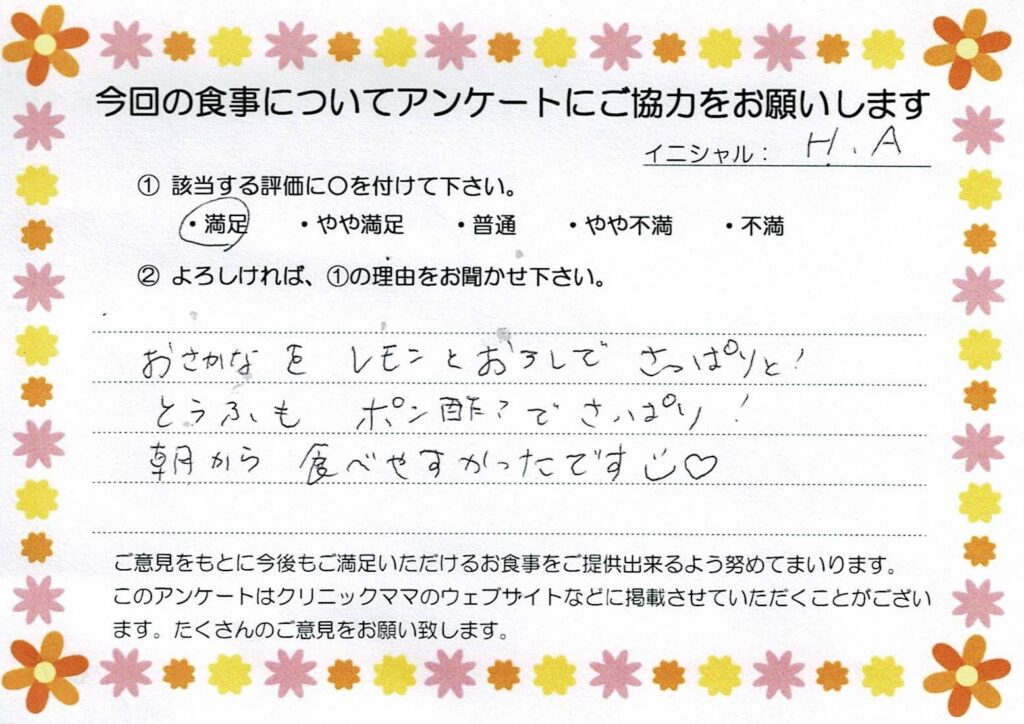 今回の食事についてアンケートにご協力をお願いします
イニシャル： H．A
① 該当する評価に〇を付けて下さい。
・満足 ・やや満足 ・普通 ・やや不満 ・不満
② よろしければ、①の理由をお聞かせ下さい。
おさかなを レモンとおろしで さっぱりと！
とうふも ポン酢？で さっぱり！
朝から 食べやすかったです♡
ご意見をもとに今後もご満足いただけるお食事をご提供出来るよう努めてまいります。
このアンケートはクリニックママのウェブサイトなどに掲載させていただくことがござい
ます。たくさんのご意見をお願い致します。